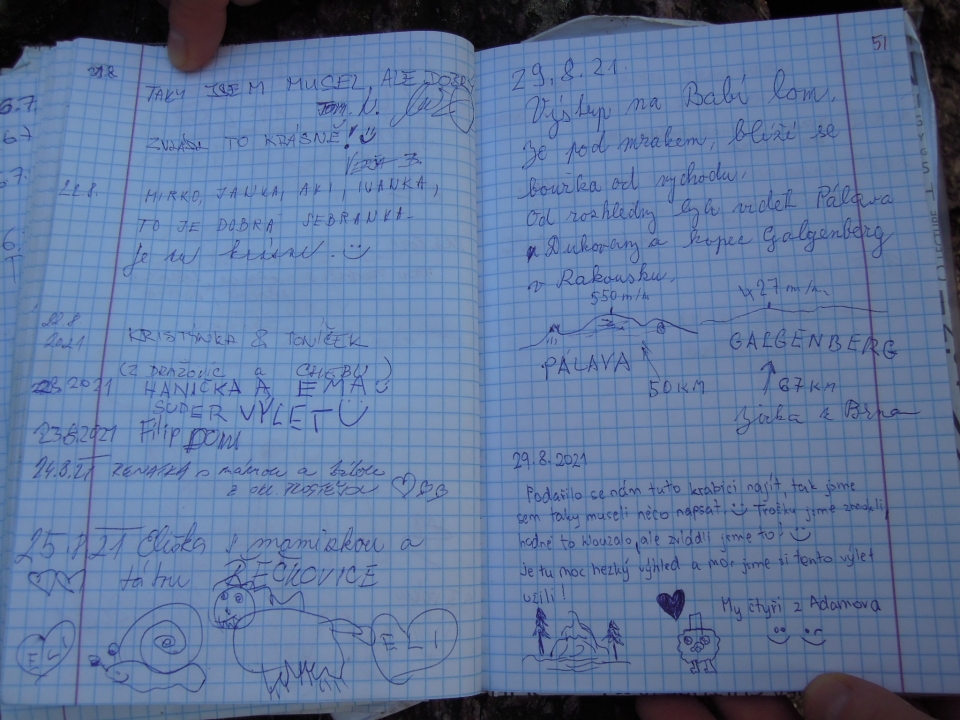 TAKY JSEM MUSEL, ALE DOBRÝ
TO KRÁSNÉ!
22.8.
MIRKO, JANKA, AKI, IVANKA,
TO JE DOBRÁ SEBRANKA.
Je tu krásně.
22.8
2021
KRISTÝNKA & TONÍČEK
(Z a CHEBU)
2021 HANIČKA A EMA
SUPER VÝLET
23.8.2021 Filip DOM
24.8.21 s mámou a
z
25.8.21 Eliška s maminkou a
tátou ŘEČKOVICE
ELI
ELI
51
29.8.21.
Výstup na Babí lom.
Je pod mrakem, blíží se
bouřka od východu.
Od rozhledny lze vidět Pálava
Dukovany a kopec Galgenberg
v Rakousku.
550 m/n.
427 m/n.
PÁLAVA
GALGENBERG
50 KM
67 KM
Jirka z Brna
29.8.2021
Podařilo se nám tuto krabici najít, tak jsme
sem taky museli něco napsat! Trošku jsme zmokli,
hodně to klouzalo, ale zvládli jsme to!
je tu moc hezký výhled a moc jsme si tento výlet
užili!
My čtyři z Adamova